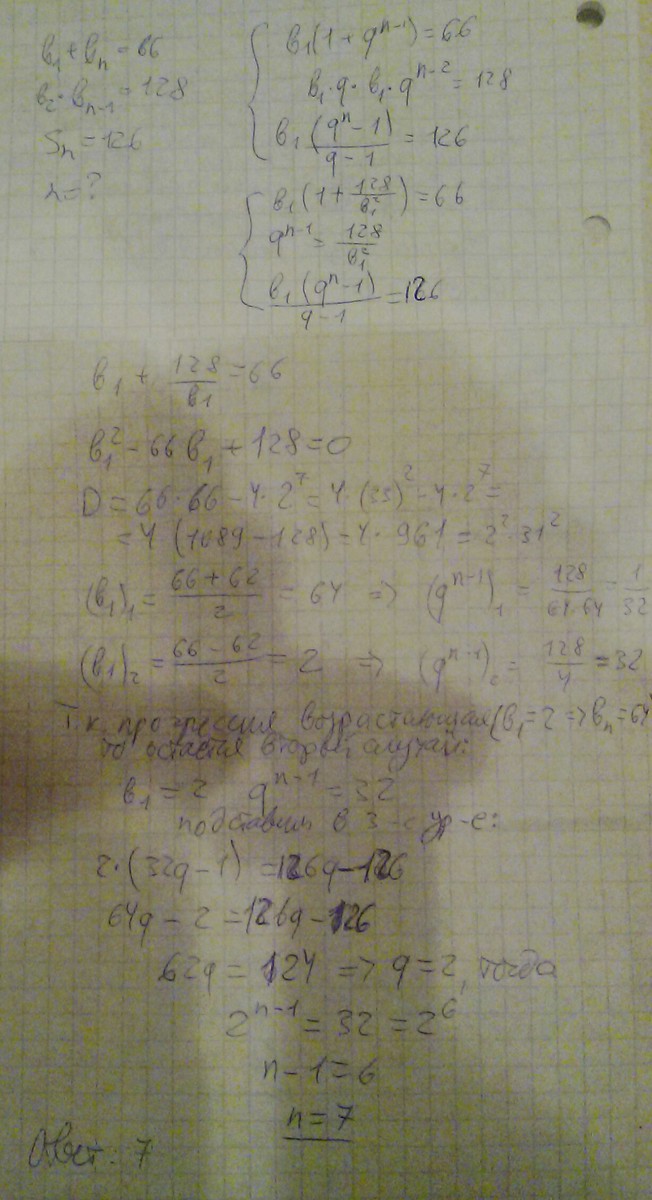 b₁+bₙ=66
b₂·bₙ₋₁=128
Sₙ=126
n=?
b₁(1+qⁿ⁻¹)=66
b₁·q·b₁·qⁿ⁻²=128
b₁(qⁿ-1)/(q-1)=126
b₁(1+128/b₁²)=66
qⁿ⁻¹=128/b₁²
b₁(qⁿ-1)/(q-1)=126
b₁+128/b₁=66
b₁²-66b₁+128=0
D=66·66-4·2⁷=4·(33)²-4·2⁷=
=4(1089-128)=4·961=2²·31²
(b₁)₁=(66+62)/2=64 => (qⁿ⁻¹)₁=128/(64·64)=1/32
(b₁)₂=(66-62)/2=2 => (qⁿ⁻¹)₂=128/4=32
Т.к. прогрессия возрастающая(b₁=2=>bₙ=64
то остается второй случай:
b₁=2 qⁿ⁻¹=32
подставим в 3-е ур-е:
2·(32q-1)=126q-126
64q-2=126q-126
62q=124 => q=2, тогда
2ⁿ⁻¹=32=2⁶
n-1=6
n=7
Ответ: 7